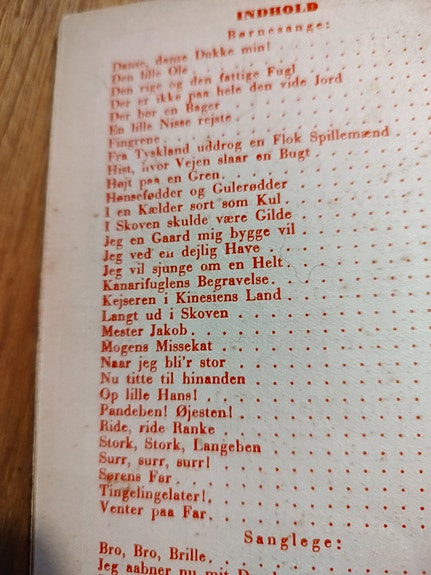 INDHOLD
Børnesange:
Danse, danse Dokke min!
Den lille Ole
Den rige og den fattige Fugl
Der er ikke paa hele den vide Jord
Der bor en Bager
En lille Nisse rejste
Fingrene
Fra Tyskland uddrog en Flok Spillemænd
Hist, hvor Vejen slaar en Bugt
Højt paa en Gren
Hønsefødder og Gulerødder
I en Kælder sort som Kul
I Skoven skulde være Gilde
Jeg en Gaard mig bygge vil
Jeg ved en dejlig Have
Jeg vil sjunge om en Helt
Kanarifuglens Begravelse
Kejseren i Kinesiens Land
Langt ud i Skoven
Mester Jakob
Mogens Missekat
Naar jeg bli'r stor
Nu titte til hinanden
Op lille Hans!
Pandeben! Øjesten!
Ride, ride Ranke
Stork, Stork, Langeben
Surr, surr, surr!
Sørens Far
Tingelingelater!
Venter paa Far
Sanglege:
Bro, Bro, Brille
Jeg aabner nu mit